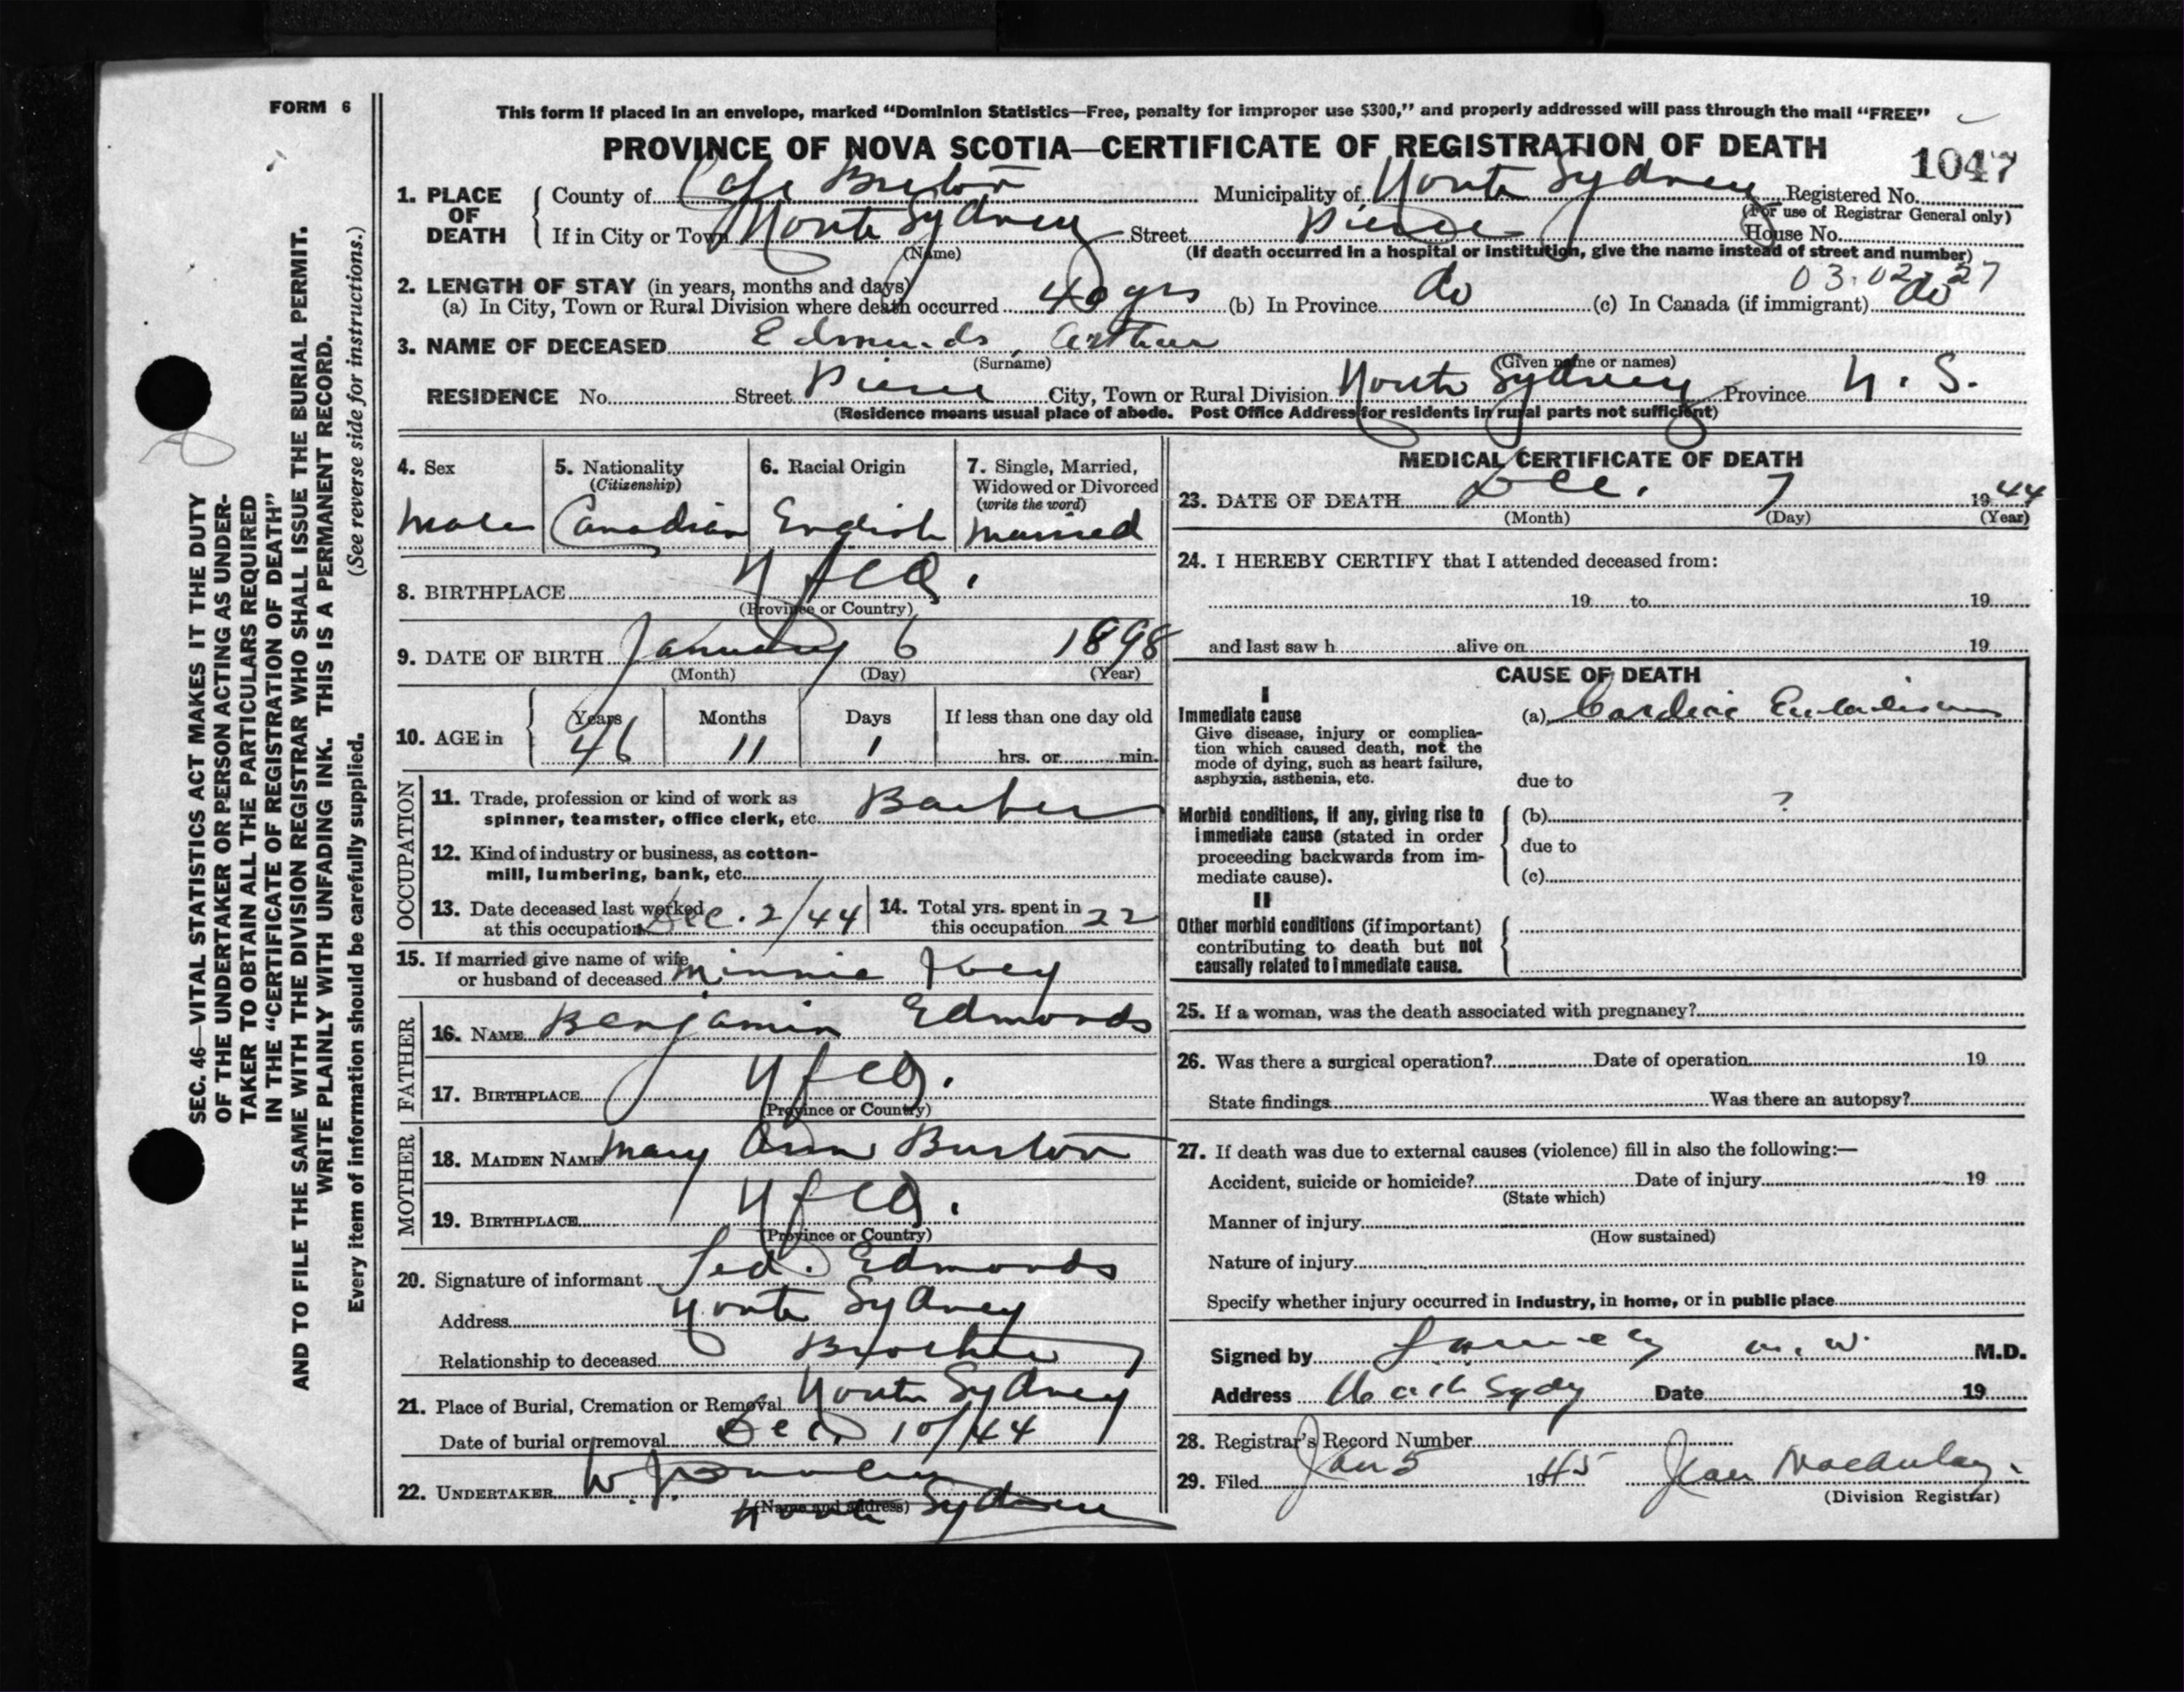 FORM 6
This form if placed in an envelope, marked “Dominion Statistics—Free, penalty for improper use $300,” and properly addressed will pass through the mail “FREE”
PROVINCE OF NOVA SCOTIA—CERTIFICATE OF REGISTRATION OF DEATH
1047
1. PLACE OF DEATH County of Cape Breton Municipality of North Sydney Registered No.
(For use of Registrar General only)
If in City or Town North Sydney Street Pierce House No.
(Name) (If death occurred in a hospital or institution, give the name instead of street and number)
03.02.27
2. LENGTH OF STAY (in years, months and days)
(a) In City, Town or Rural Division where death occurred 40 yrs (b) In Province do (c) In Canada (if immigrant) do
3. NAME OF DECEASED Edmunds, Arthur
(Surname) (Given name or names)
RESIDENCE No. Street Pierce City, Town or Rural Division North Sydney Province N.S.
(Residence means usual place of abode. Post Office Address for residents in rural parts not sufficient)
4. Sex
Male
5. Nationality
(Citizenship)
Canadian
6. Racial Origin
English
7. Single, Married,
Widowed or Divorced
(write the word)
Married
8. BIRTHPLACE Nfld.
(Province or Country)
9. DATE OF BIRTH January 6 1898
(Month) (Day) (Year)
10. AGE in
Years Months Days If less than one day old
46 11 1 hrs. or min.
OCCUPATION
11. Trade, profession or kind of work as
spinner, teamster, office clerk, etc. Barber
12. Kind of industry or business, as cotton-
mill, lumbering, bank, etc.
13. Date deceased last worked
at this occupation Dec. 2/44
14. Total yrs. spent in
this occupation 22
15. If married give name of wife
or husband of deceased Minnie Ivey
FATHER
16. NAME Benjamin Edmonds
17. BIRTHPLACE Nfld.
(Province or Country)
MOTHER
18. MAIDEN NAME Mary Ann Burton
19. BIRTHPLACE Nfld.
(Province or Country)
20. Signature of informant Ted. Edmonds
Address North Sydney
Relationship to deceased Brother
21. Place of Burial, Cremation or Removal North Sydney
Date of burial or removal Dec. 10/44
22. UNDERTAKER W. J.
(Name and address)
North Sydney
MEDICAL CERTIFICATE OF DEATH
23. DATE OF DEATH Dec. 7 1944
(Month) (Day) (Year)
24. I HEREBY CERTIFY that I attended deceased from:
19 to 19
and last saw h alive on 19
CAUSE OF DEATH
I
Immediate cause
Give disease, injury or complica-
tion which caused death, not the
mode of dying, such as heart failure,
asphyxia, asthenia, etc.
(a) Cardiac
due to
Morbid conditions, if any, giving rise to
immediate cause (stated in order
proceeding backwards from im-
mediate cause).
(b) ?
due to
(c)
II
Other morbid conditions (if important)
contributing to death but not
causally related to immediate cause.
25. If a woman, was the death associated with pregnancy?
26. Was there a surgical operation? Date of operation 19
State findings Was there an autopsy?
27. If death was due to external causes (violence) fill in also the following:—
Accident, suicide or homicide? Date of injury 19
(State which)
Manner of injury
(How sustained)
Nature of injury
Specify whether injury occurred in industry, in home, or in public place
Signed by M.D.
Address North Sydy Date 19
28. Registrar's Record Number
29. Filed Jan 5 1945 Jean MacAulay.
(Division Registrar)
SEC. 46—VITAL STATISTICS ACT MAKES IT THE DUTY
OF THE UNDERTAKER OR PERSON ACTING AS UNDER-
TAKER TO OBTAIN ALL THE PARTICULARS REQUIRED
IN THE “CERTIFICATE OF REGISTRATION OF DEATH”
AND TO FILE THE SAME WITH THE DIVISION REGISTRAR WHO SHALL ISSUE THE BURIAL PERMIT.
WRITE PLAINLY WITH UNFADING INK. THIS IS A PERMANENT RECORD.
Every item of information should be carefully supplied. (See reverse side for instructions.)